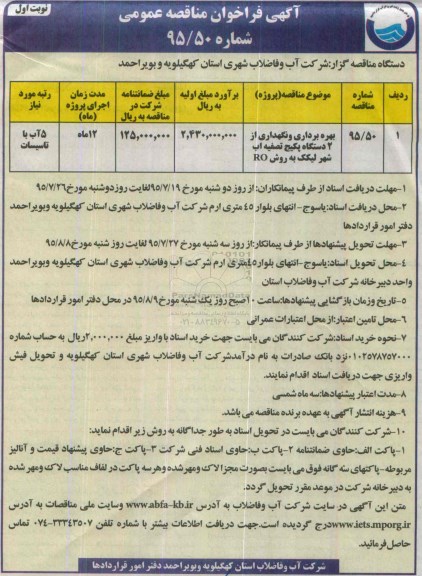 آگهی فراخوان مناقصه عمومی
شماره ۹۵/۵۰
نوبت اول
دستگاه مناقصه گزار:شرکت آب وفاضلاب شهری استان کهگیلویه و بویراحمد
ردیف
شماره مناقصه
موضوع مناقصه(پروژه)
برآورد مبلغ اولیه به ریال
مبلغ ضمانتنامه شرکت در مناقصه به ریال
مدت زمان اجرای پروژه (ماه)
رتبه مورد نیاز
۱
۹۵/۵۰
بهره برداری ونگهداری از ۲ دستگاه پکیج تصفیه آب شهر لیکک به روش RO
۲,۴۳۰,۰۰۰,۰۰۰
۱۲۵,۰۰۰,۰۰۰
۱۲ماه
۵آب با تاسیسات
۱-مهلت دریافت اسناد از طرف پیمانکاران: از روز دو شنبه مورخ ۹۵/۷/۱۹لغایت روزدوشنبه مورخ۹۵/۷/۲۶
۲-محل دریافت اسناد:یاسوج-انتهای بلوار ۴۵ متری ارم شرکت آب وفاضلاب شهری استان کهگیلویه وبویراحمد
دفتر امور قراردادها
۳-مهلت تحویل پیشنهادها از طرف پیمانکار:از روز سه شنبه مورخ ۹۵/۷/۲۷ لغایت روز شنبه مورخ ۹۵/۸/۸
۴-محل تحویل اسناد:یاسوج-انتهای بلوار۴۵متری ارم شرکت آب وفاضلاب شهری استان کهگیلویه وبویراحمد
واحد دبیرخانه شرکت آب وفاضلاب استان
۵-تاریخ وزمان بازگشایی پیشنهادها:ساعت ۱۰صبح روز یک شنبه مورخ۹۵/۸/۹ در محل دفتر امور قراردادها
۶-محل تامین اعتبار:از محل اعتبارات عمرانی
۷-نحوه خرید اسناد:شرکت کنندگان می بایست جهت خرید اسناد با واریز مبلغ ۲,۰۰۰,۰۰۰ریال به حساب شماره
۰۱۰۲۵۷۸۷۵۷۰۰۰نزد بانک صادرات به نام درآمدشرکت آب وفاضلاب شهری استان کهگیلویه و تحویل فیش
واریزی جهت دریافت اسناد اقدام نمایند.
۸-مدت اعتبار پیشنهادها:سه ماه شمسی
۹-هزینه انتشار آگهی به عهده برنده مناقصه می باشد.
۱۰-شرکت کنندگان می بایست در تحویل اسناد به طور جداگانه به روش زیر اقدام نمایند:
۱-پاکت الف:حاوی ضمانتنامه ۲-پاکت ب:حاوی اسناد فنی شرکت ۳-پاکت ج:حاوی پیشنهاد قیمت و آنالیز
مربوطه-پاکتهای سه گانه فوق می بایست بصورت مجزا لاک ومهر شده وهرسه پاکت در لفاف مناسب لاک ومهر شده
به دبیرخانه شرکت در موعد مقرر تحویل گردد.
متن این آگهی در سایت شرکت آب وفاضلاب به آدرس www.abfa-kb.ir وسایت ملی مناقصات به آدرس
www.iets.mporg.irدرج گردیده است.جهت دریافت اطلاعات بیشتر با شماره تلفن ۳۳۳۴۳۵۰۷-۰۷۴ تماس
حاصل فرمائید.
شرکت آب وفاضلاب استان کهگیلویه وبویراحمد دفتر امور قراردادها